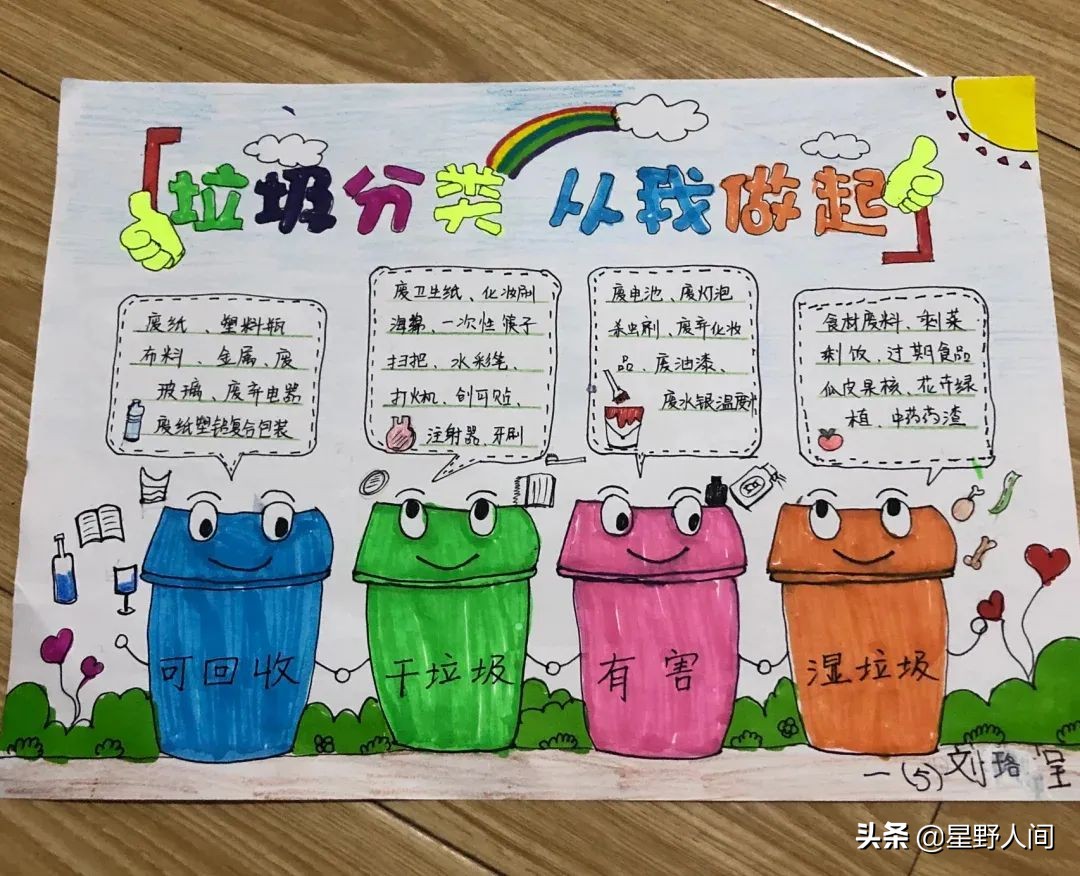 垃圾分类 从我做起
废纸、塑料瓶
布料、金属、废
玻璃、废弃电器
废纸塑铝复合包装
废卫生纸、化妆刷
海绵、一次性筷子
扫把、水彩笔、
打火机、创可贴、
注射器、牙刷
废电池、废灯泡
杀虫剂、废弃化妆
品、废油漆、
废水银温度计
食材废料、剩菜
剩饭、过期食品
瓜皮果核、花卉绿
植、中药药渣
可回收
干垃圾
有害
湿垃圾
一(5)刘珞呈
头条 @星野人间